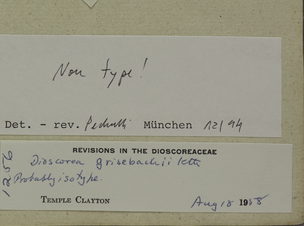 Non type!
Det. - rev. Pedralli München 12/94
REVISIONS IN THE DIOSCOREACEAE
Dioscorea grisebachii Kth
Probably isotype.
TEMPLE CLAYTON Aug 18 1958